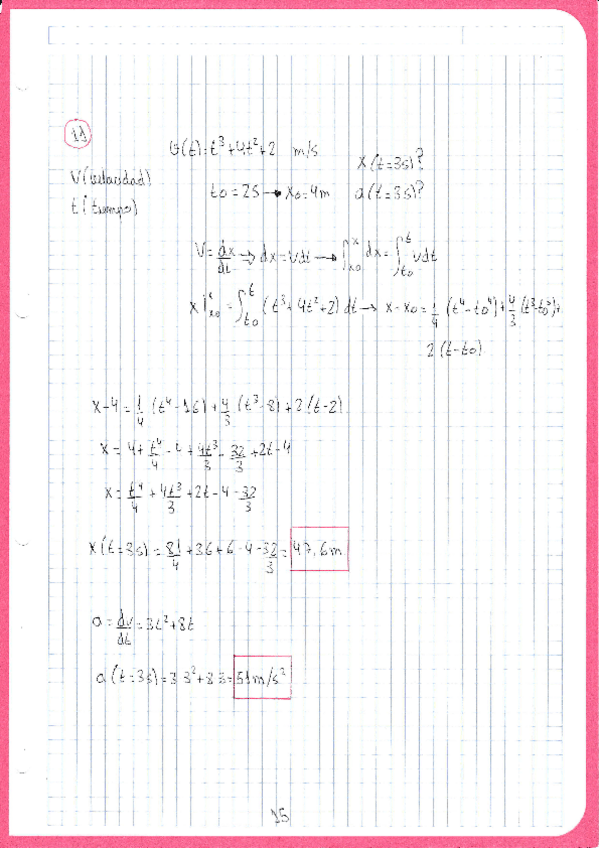 11
v(t)=t³+4t²+2 m/s
x(t=3s)?
V(velocidad)
t0=2s → x0=4m
a(t=3s)?
t(tiempo)
V=dx/dt → dx=vdt → ∫_{x0}^{x} dx=∫_{t0}^{t} vdt
x]_{x0}^{x} = ∫_{t0}^{t} (t³+4t²+2)dt → x-x0=1/4 (t⁴-t0⁴)+4/3 (t³-t0³)+
2(t-t0)
x-4=1/4 (t⁴-16)+4/3 (t³-8)+2(t-2)
x=4+t⁴/4-4+4t³/3-32/3+2t-4
x=t⁴/4+4t³/3+2t-4-32/3
x(t=3s)=81/4+36+6-4-32/3=47,6m
a=dv/dt=3t²+8t
a(t=3s)=3·3²+8·3=51m/s²
15